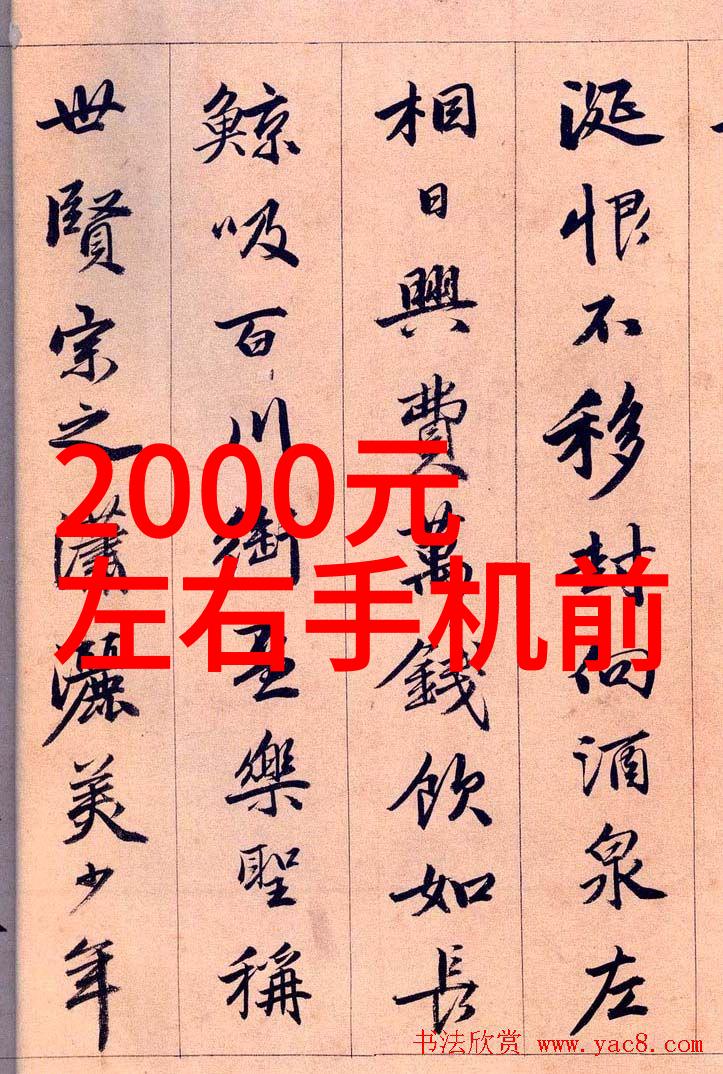 涎恨不移封向酒泉左
相日興費萬錢飲如長
鯨吸百川銜盃樂聖稱
世賢宗之瀟灑美少年
2000元
左右手机前
书法欣赏 www.yac8.com